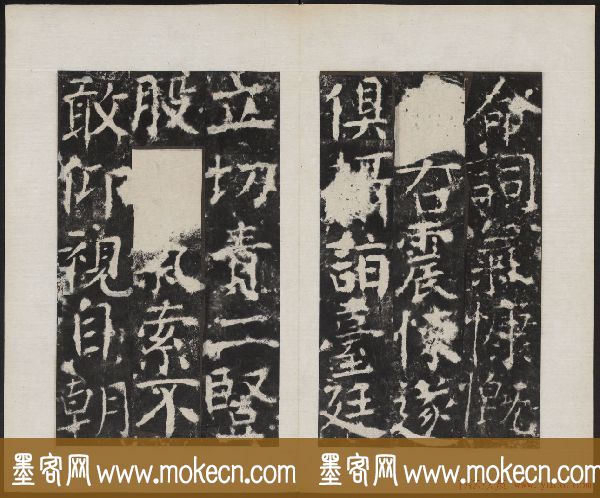 命詞氣慷慨
右震悚遂
俱攝詣臺廷
立切責二竪
股氣索不
敢仰視自朝
墨客网 www.mokecn.com 墨客网 www.mokecn.com